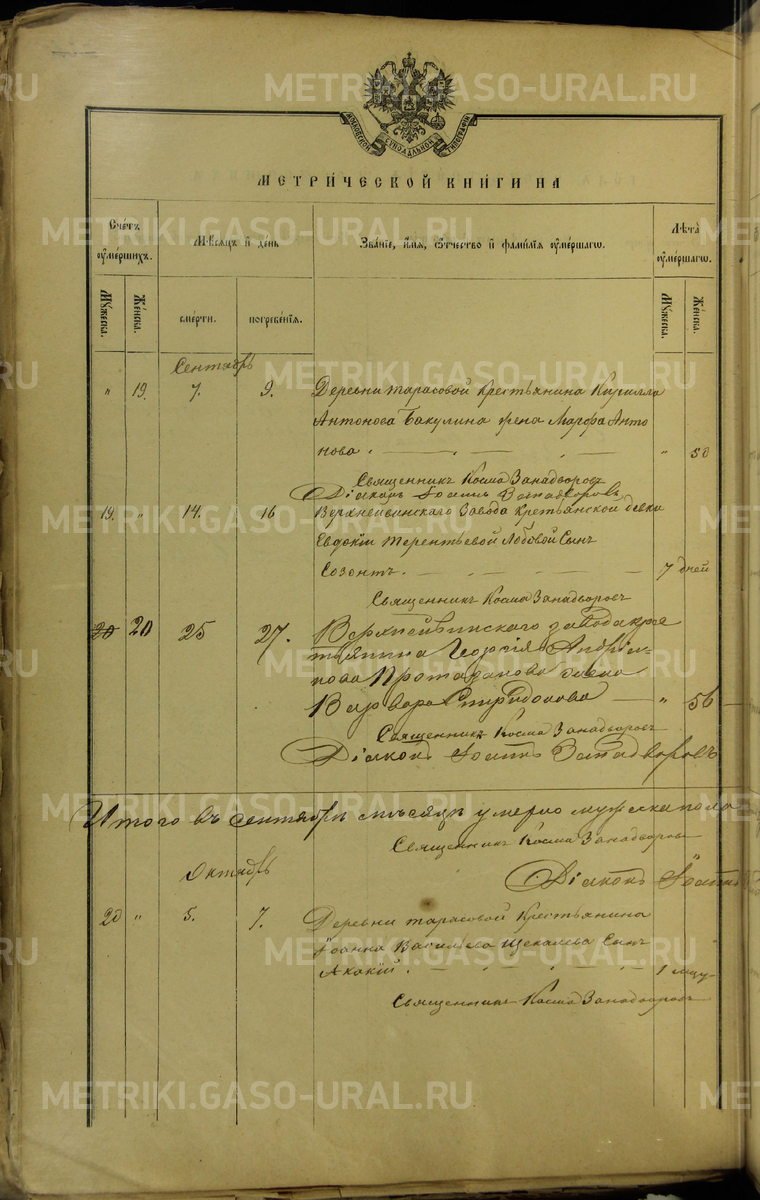 МОСКОВСКОЙ СѴНОДАЛЬНОЙ ТИПОГРАФІИ
МЕТРИ́ЧЕСКОЙ КНИ́ГИ НА
Сче́тъ оуме́ршихъ.
Мѣ́сяцъ и де́нь
Зва́ніе, и́мя, ѻ҆́тчество и фами́лія оуме́ршагѡ.
Лѣта̀ оуме́ршагѡ.
Мꙋ́жеска.
Же́нска.
сме́рти.
погребе́нія.
Мꙋ́жеска.
Же́нска.
Сентябрь
" 19. 7. 9. Деревни Тарасовой Крестьянина Кирилла
Антонова Бакулина жена Марфа Анто
нова " 50
Священникъ Косма Занадворовъ
Діаконъ Іоаннъ Занадворовъ
19. " 14. 16 Верхнейвинскаго Завода Кретьянской девки
Евдокіи Терентьевой Лобовой Сынъ
Созонтъ. 7 дней
Священникъ Косма Занадворовъ
20 20 25 27. Верхнейвинскаго завода кре
тьянина Георгія Андріа-
нова Протазанова жена
Варвара Спиридонова " 56
Священникъ Косма Занадворовъ
Діаконъ Іоаннъ Занадворовъ
Итого въ сентябрѣ мѣсяцѣ умерло мужеска пола
Священникъ Косма Занадворовъ
Діаконъ Іоаннъ
Октябрь
20 " 5. 7. Деревни Тарасовой Крестьянина
Іоанна Васильева Щекалева Сынъ
Акакій 1 мцу
Священникъ Косма Занадворовъ
METRIKI.GASO-URAL.RU